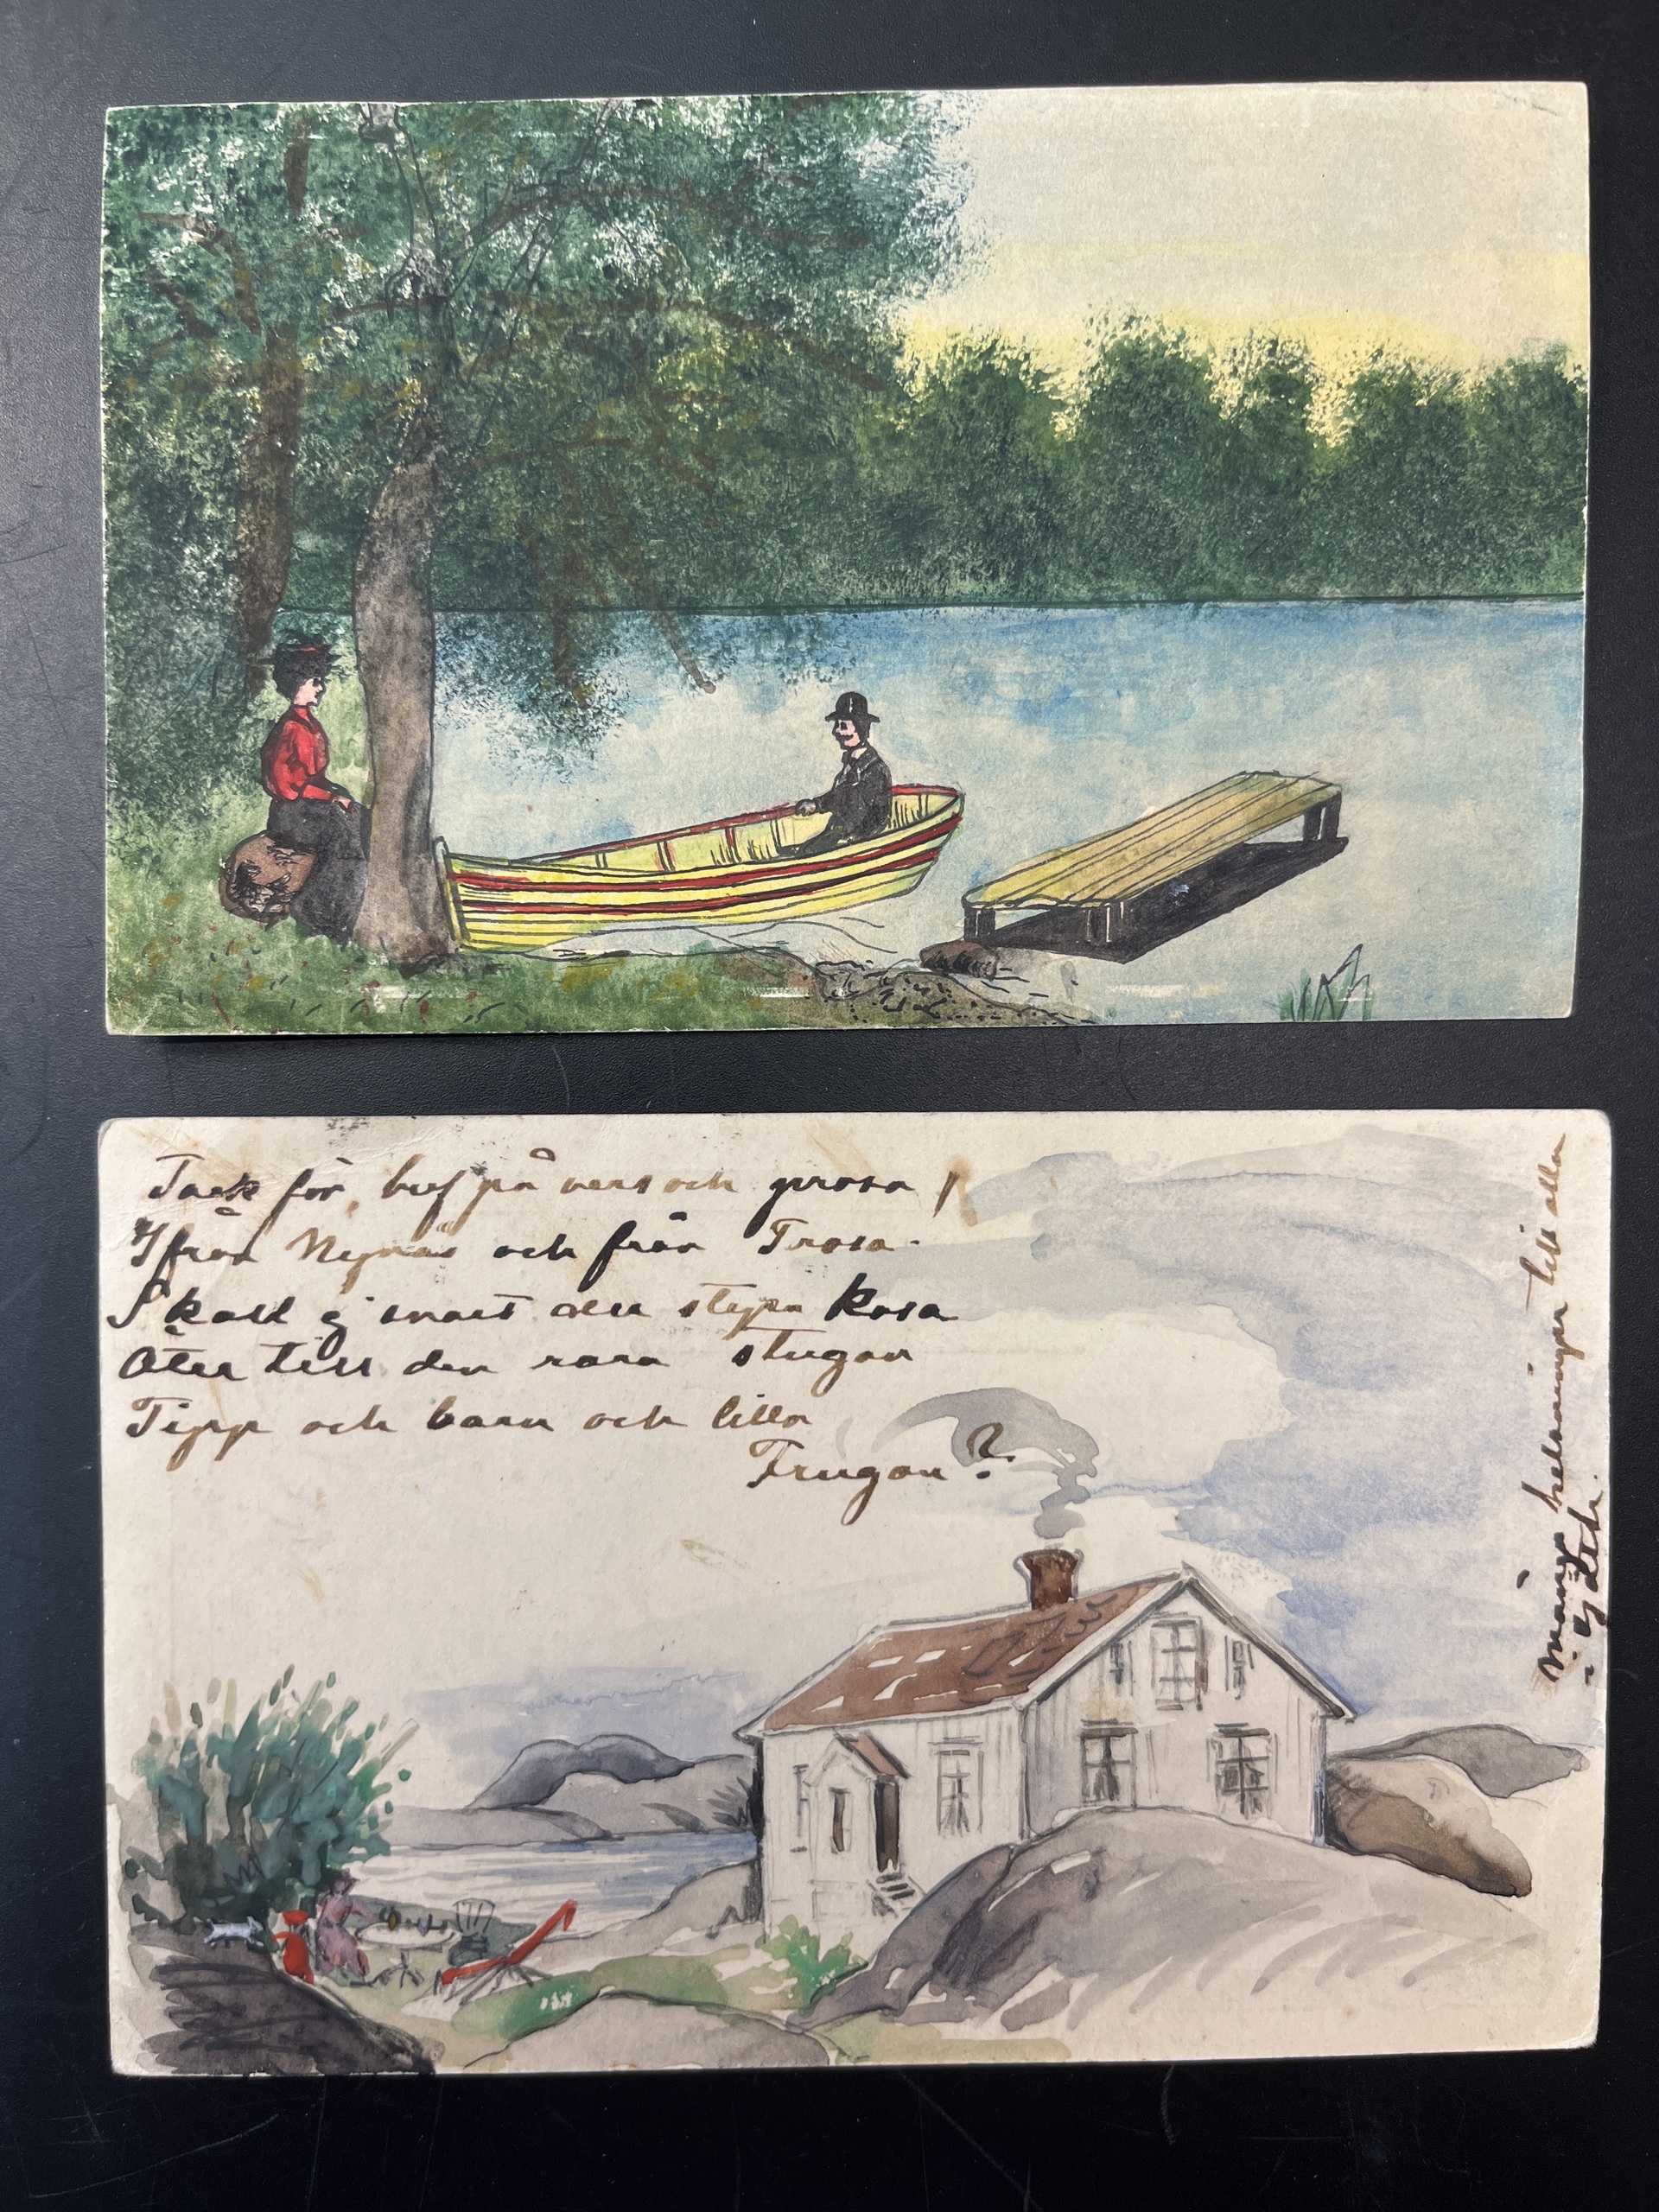 Tack för, bref på vers och prosa!
Ifrån Nynäs och från Trosa.
Skall ej snart du styra kosa
Åter till den rara stugan
Tipp och barn och lilla
Frugan?
Många helsningar till alla
i